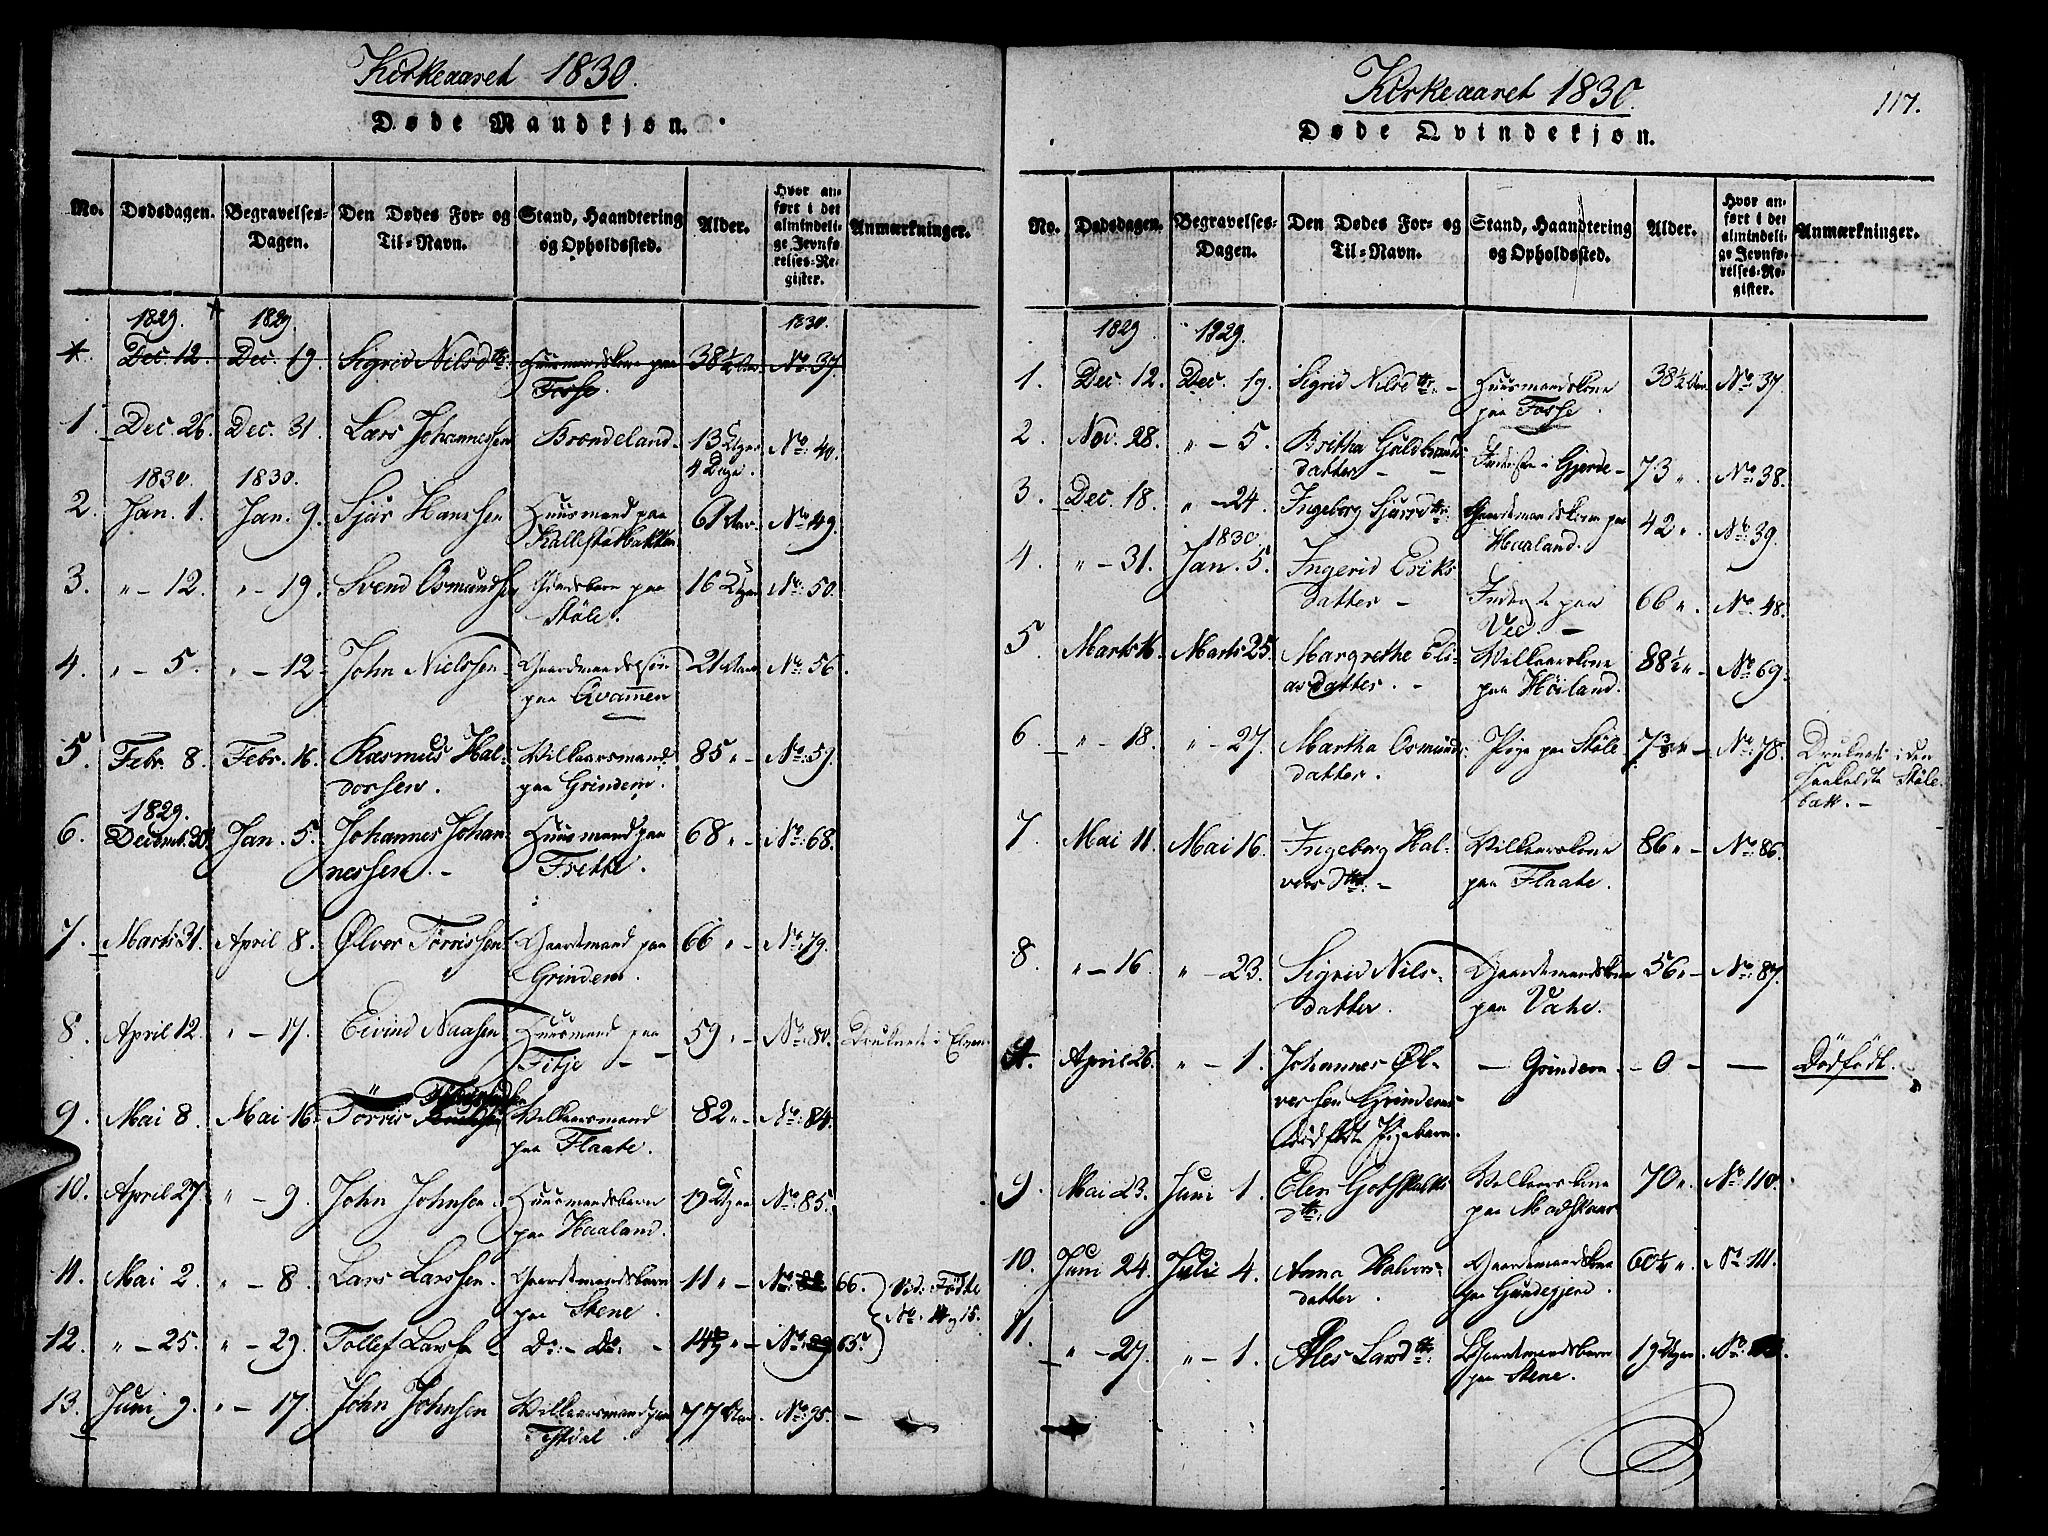 Kirkeaaret 1830.
Døde Mandkjøn.
No. Dødsdagen. Begravelses-Dagen. Den Dødes For- og Til-Navn. Stand, Haandtering og Opholdssted. Alder. Hvor anført i det almindelige Jevnførelses-Register. Anmærkninger.
1829. 1829. 1830.
Dec. 12. Dec. 19. Sigrid Nilsdtr: Huusmandskone paa Fosse. 38½ Aar No. 37.
1. Dec. 26. Dec. 31. Lars Johannessen Brændeland. 13 Uger 4 Dage. No. 40.
1830. 1830.
2. Jan. 1. Jan. 9. Sjur Hanssen Huusmand paa 61 Aar. No. 49.
3. " - 12. " - 19. Svend Osmundsen paa Støle. 16 Uger No. 50.
4. " - 5. " - 12. John Nielssen Gaardmandssøn paa Qvammen 21 Aar No. 56.
5. Febr. 8. Febr. 16. Rasmus Haldorsen. Vilkaarsmand paa Grindem. 85 " - No. 59.
1829.
6. Decemb. 30. Jan. 5. Johannes Johannessen. - Huusmand paa Frette. 68 " - No. 68.
7. Marts 31. April 8. Ølver Tørrissen Gaardmand paa Grindem. 66 " - No. 79.
8. April 12. " - 17. Eivind Naasen Huusmand paa Fitje - 59 " - No. 80. Druknede i Elven.
9. Mai 8. Mai 16. Törris Vilkaarsmand paa Flaate. 82 " - No. 84.
10. April 27. " - 9. John Johnsen. Huusmandsbarn paa Haaland. 19 Uger No. 85.
11. Mai 2. " - 8. Lars Larssen. Gaardmandsbarn paa Stene. 11 " - No. 66. Vid. Födte No. 14 og 15.
12. " - 25. " - 29. Tollef Larssen Do. - Do. - 14 " - No. 65.
13. Juni 9. " - 17. John Johnsen Vilkaarsmand paa 77 Aar. No. 95. -
Kirkeaaret 1830.
117.
Døde Qvindekjøn.
No. Dødsdagen. Begravelses-Dagen. Den Dødes For- og Til-Navn. Stand, Haandtering og Opholdssted. Alder. Hvor anført i det almindelige Jevnførelses-Register. Anmærkninger.
1829 1829.
1. Dec. 12. Dec. 19. Sigrid Nilsdtr: - Huusmandskone paa Fosse. 38½ Aar No. 37.
2. Nov. 28. " - 5. Britha Guldbrandsdatter - Inderste i Gjerde - 73 " . No. 38.
3. Dec. 18. " - 24. Ingeborg Sjursdtr: Gaardmandskone paa Haaland. 42 " . No. 39.
1830
4. " - 31. Jan. 5. Ingerid Eriksdatter - paa Vee. - 66 " . No. 48.
5. Marts 16. Marts 25. Margrethe Eliasdatter. - Vilkaarskone paa Höiland. 88½ " - No. 69.
6. " - 18. " - 27. Martha Osmundsdatter. Pige paa Støle No. 78. Druknede i den saakaldte Støle-
7. Mai 11. Mai 16. Ingeborg Halvorsdtr: - Vilkaarskone paa Flaate. 86 " - No. 86.
8. " - 16. " - 23. Sigrid Nilsdatter. Gaardmandskone paa Vatne. 56 " - No. 87.
April 26. " - 1. Johannes Ølversen Grindems dødfødte Pigebarn. - Grindem - 0 - - Dødfödt.
9. Mai 23. Juni 1. Elen Gotskalksdtr: Vilkaarskone paa 70 " . No. 110.
10. Juni 24. Juli 4. Anna Halvorsdatter. Gaardmandskone paa 60½ " . No. 111.
11. " - 27. " - 1. Ales Larsdtr: Gaardmandsbarn paa Stene. 19 Uger. No.